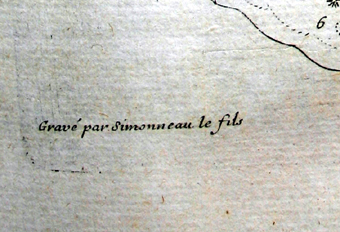 6
Gravé par Simonneau le fils